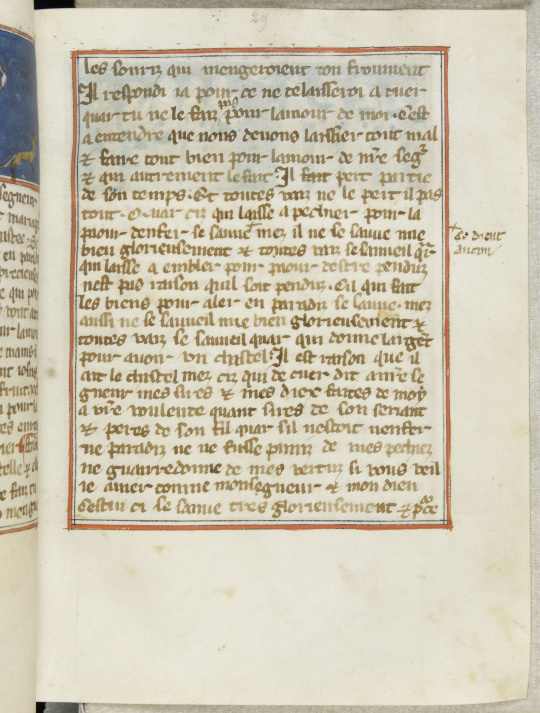 29
les souriz qui mengeroient ton froument
Il respondi ia pour ce ne te laisseroi a tuer
quar tu ne le faiz pas pour lamour de moi. Cest
a entendre que nous deuons laissier tout mal
& faire tout bien pour lamour de nre segr
& qui autrement le fait Il fait pert partie
de son temps. Et toutes vaiz ne le pert il pas
tout. quar ciz qui laisse a pechier pour la
paour denfer se sauue mez il ne se sauue mie
bien glorieusement & toutes vaiz se sauueil qr
qui laisse a embler pour paour destre penduz
nest pas raison quil soit penduz. Cil qui fait
les biens pour aler en paradiz se sauue. mez
aussi ne se sauueil mie bien glorieusement &
toutes vaiz se sauueil quar qui donne larget
pour auoir vn chastel Il est raison que il
ait le chastel mez ciz qui de cuer dit a nre se
gneur mes sires & mes diex faites de moy
a vre voulente quant sires de son seruant
& peres de son fil quar sil nestoit nenfer
ne paradiz ne ne fusse puniz de mes pechiez
ne guarredonne de mes vertuz si vous veil
ie amer comme monsegneur & mon dieu
cestui ci se sauue tres glorieusement & pce
se dient
aucun